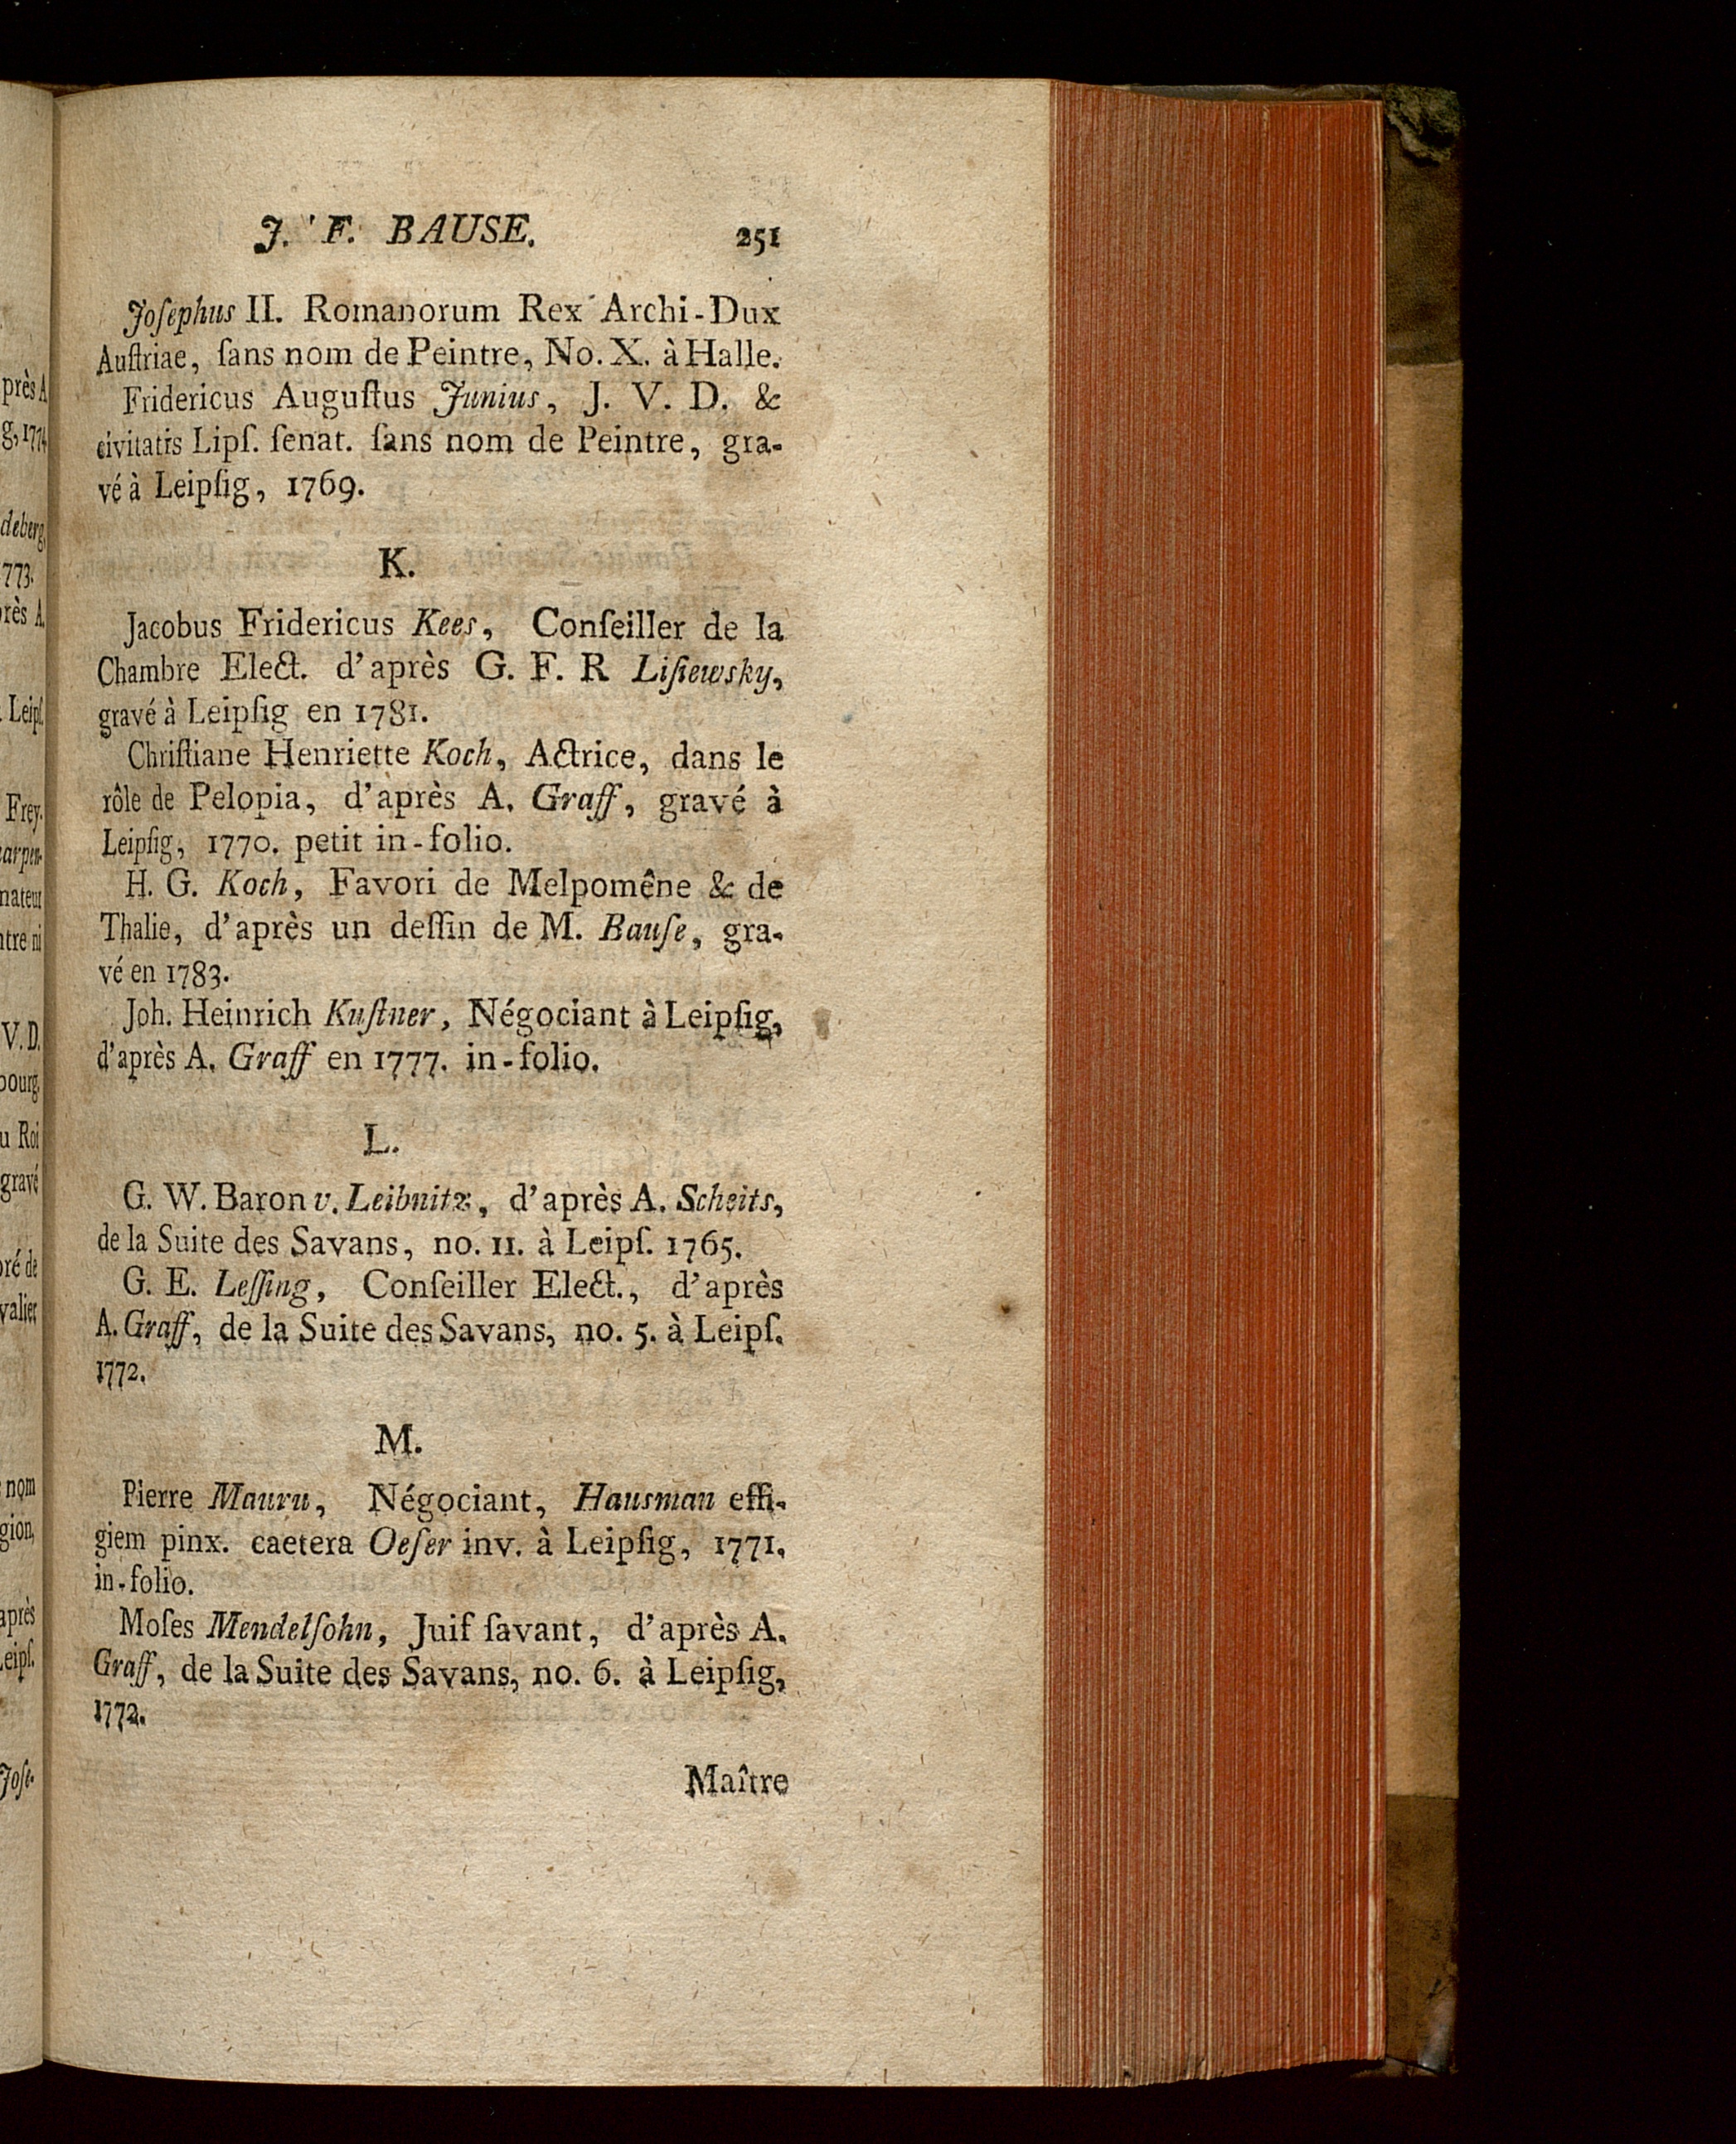 J. F. BAUSE. 251
Joſephus II. Romanorum Rex Archi-Dux
Auſtriae, ſans nom de Peintre, No. X. à Halle.
Fridericus Auguſtus Junius, J. V. D. &
civitatis Lipſ. ſenat. ſans nom de Peintre, gra-
vé à Leipſig, 1769.
K.
Jacobus Fridericus Kees, Conſeiller de la
Chambre Elect. d'après G. F. R Liſiewsky,
gravé à Leipſig en 1781.
Chriſtiane Henriette Koch, Actrice, dans le
rôle de Pelopia, d'après A. Graff, gravé à
Leipſig, 1770. petit in-folio.
H. G. Koch, Favori de Melpomêne & de
Thalie, d'après un deſſin de M. Bauſe, gra-
vé en 1783.
Joh. Heinrich Kuſtner, Négociant à Leipſig,
d'après A. Graff en 1777. in-folio.
L.
G. W. Baron v. Leibnitz, d'après A. Scheits,
de la Suite des Savans, no. 11. à Leipſ. 1765.
G. E. Leſſing, Conſeiller Elect., d'après
A. Graff, de la Suite des Savans, no. 5. à Leipſ.
1772.
M.
Pierre Mauru, Négociant, Hausman effi-
giem pinx. caetera Oeſer inv. à Leipſig, 1771.
in-folio.
Moſes Mendelſohn, Juif ſavant, d'après A.
Graff, de la Suite des Savans, no. 6. à Leipſig,
1772.
Maître